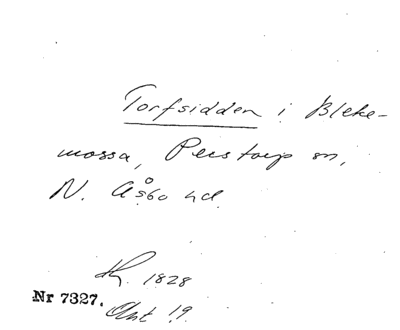 Torfsidden i Bleke-
mossa, Perstorp sn,
N. Åsbo hd.
1828
Nr 7327.
Ant 19